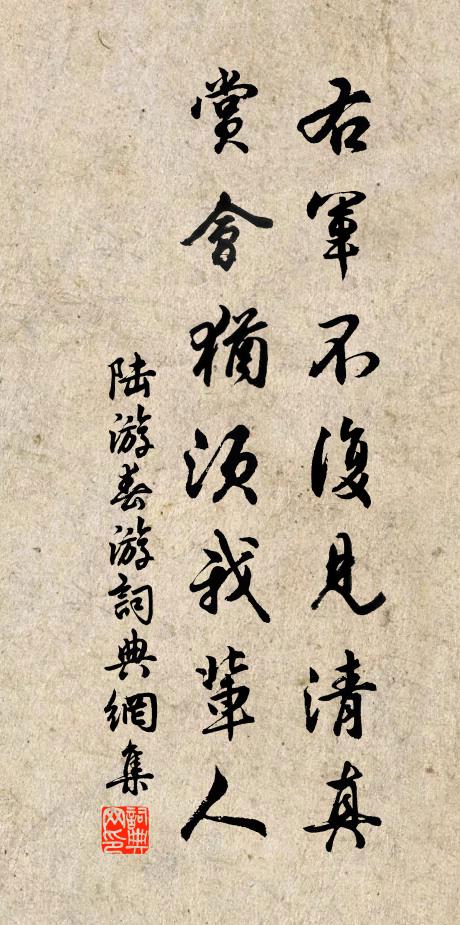 右軍不復見清真
賞會猶須我輩人
陸游春游詞典網集
詞典网印